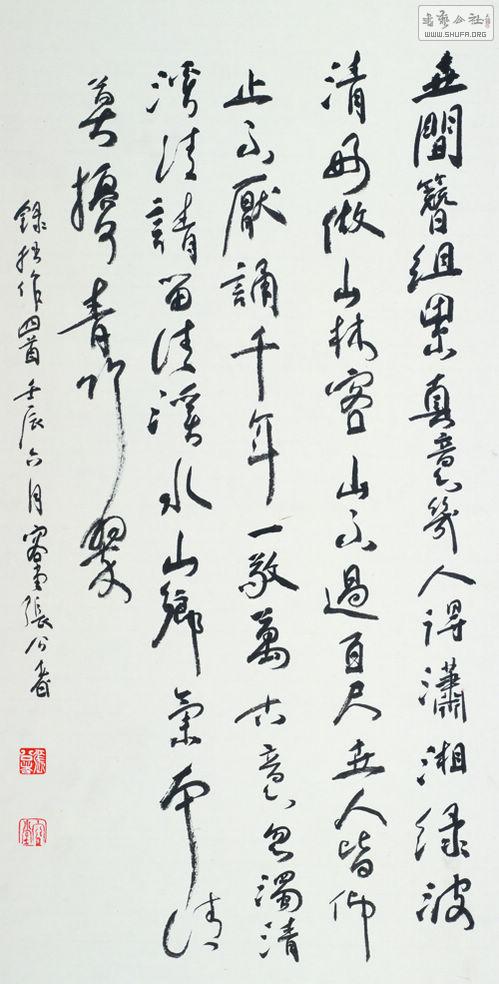 世間簪組累真意幾人得瀟湘綠波
清好做山林客山不過百尺世人皆仰
止不厭誦千年一敬萬古意忽濁清
清請留清溪水山鄉氣本清
莫擾青竹翠
錄拙作四首壬辰六月容堂張公者
書藝公社
WWW.SHUFA.ORG